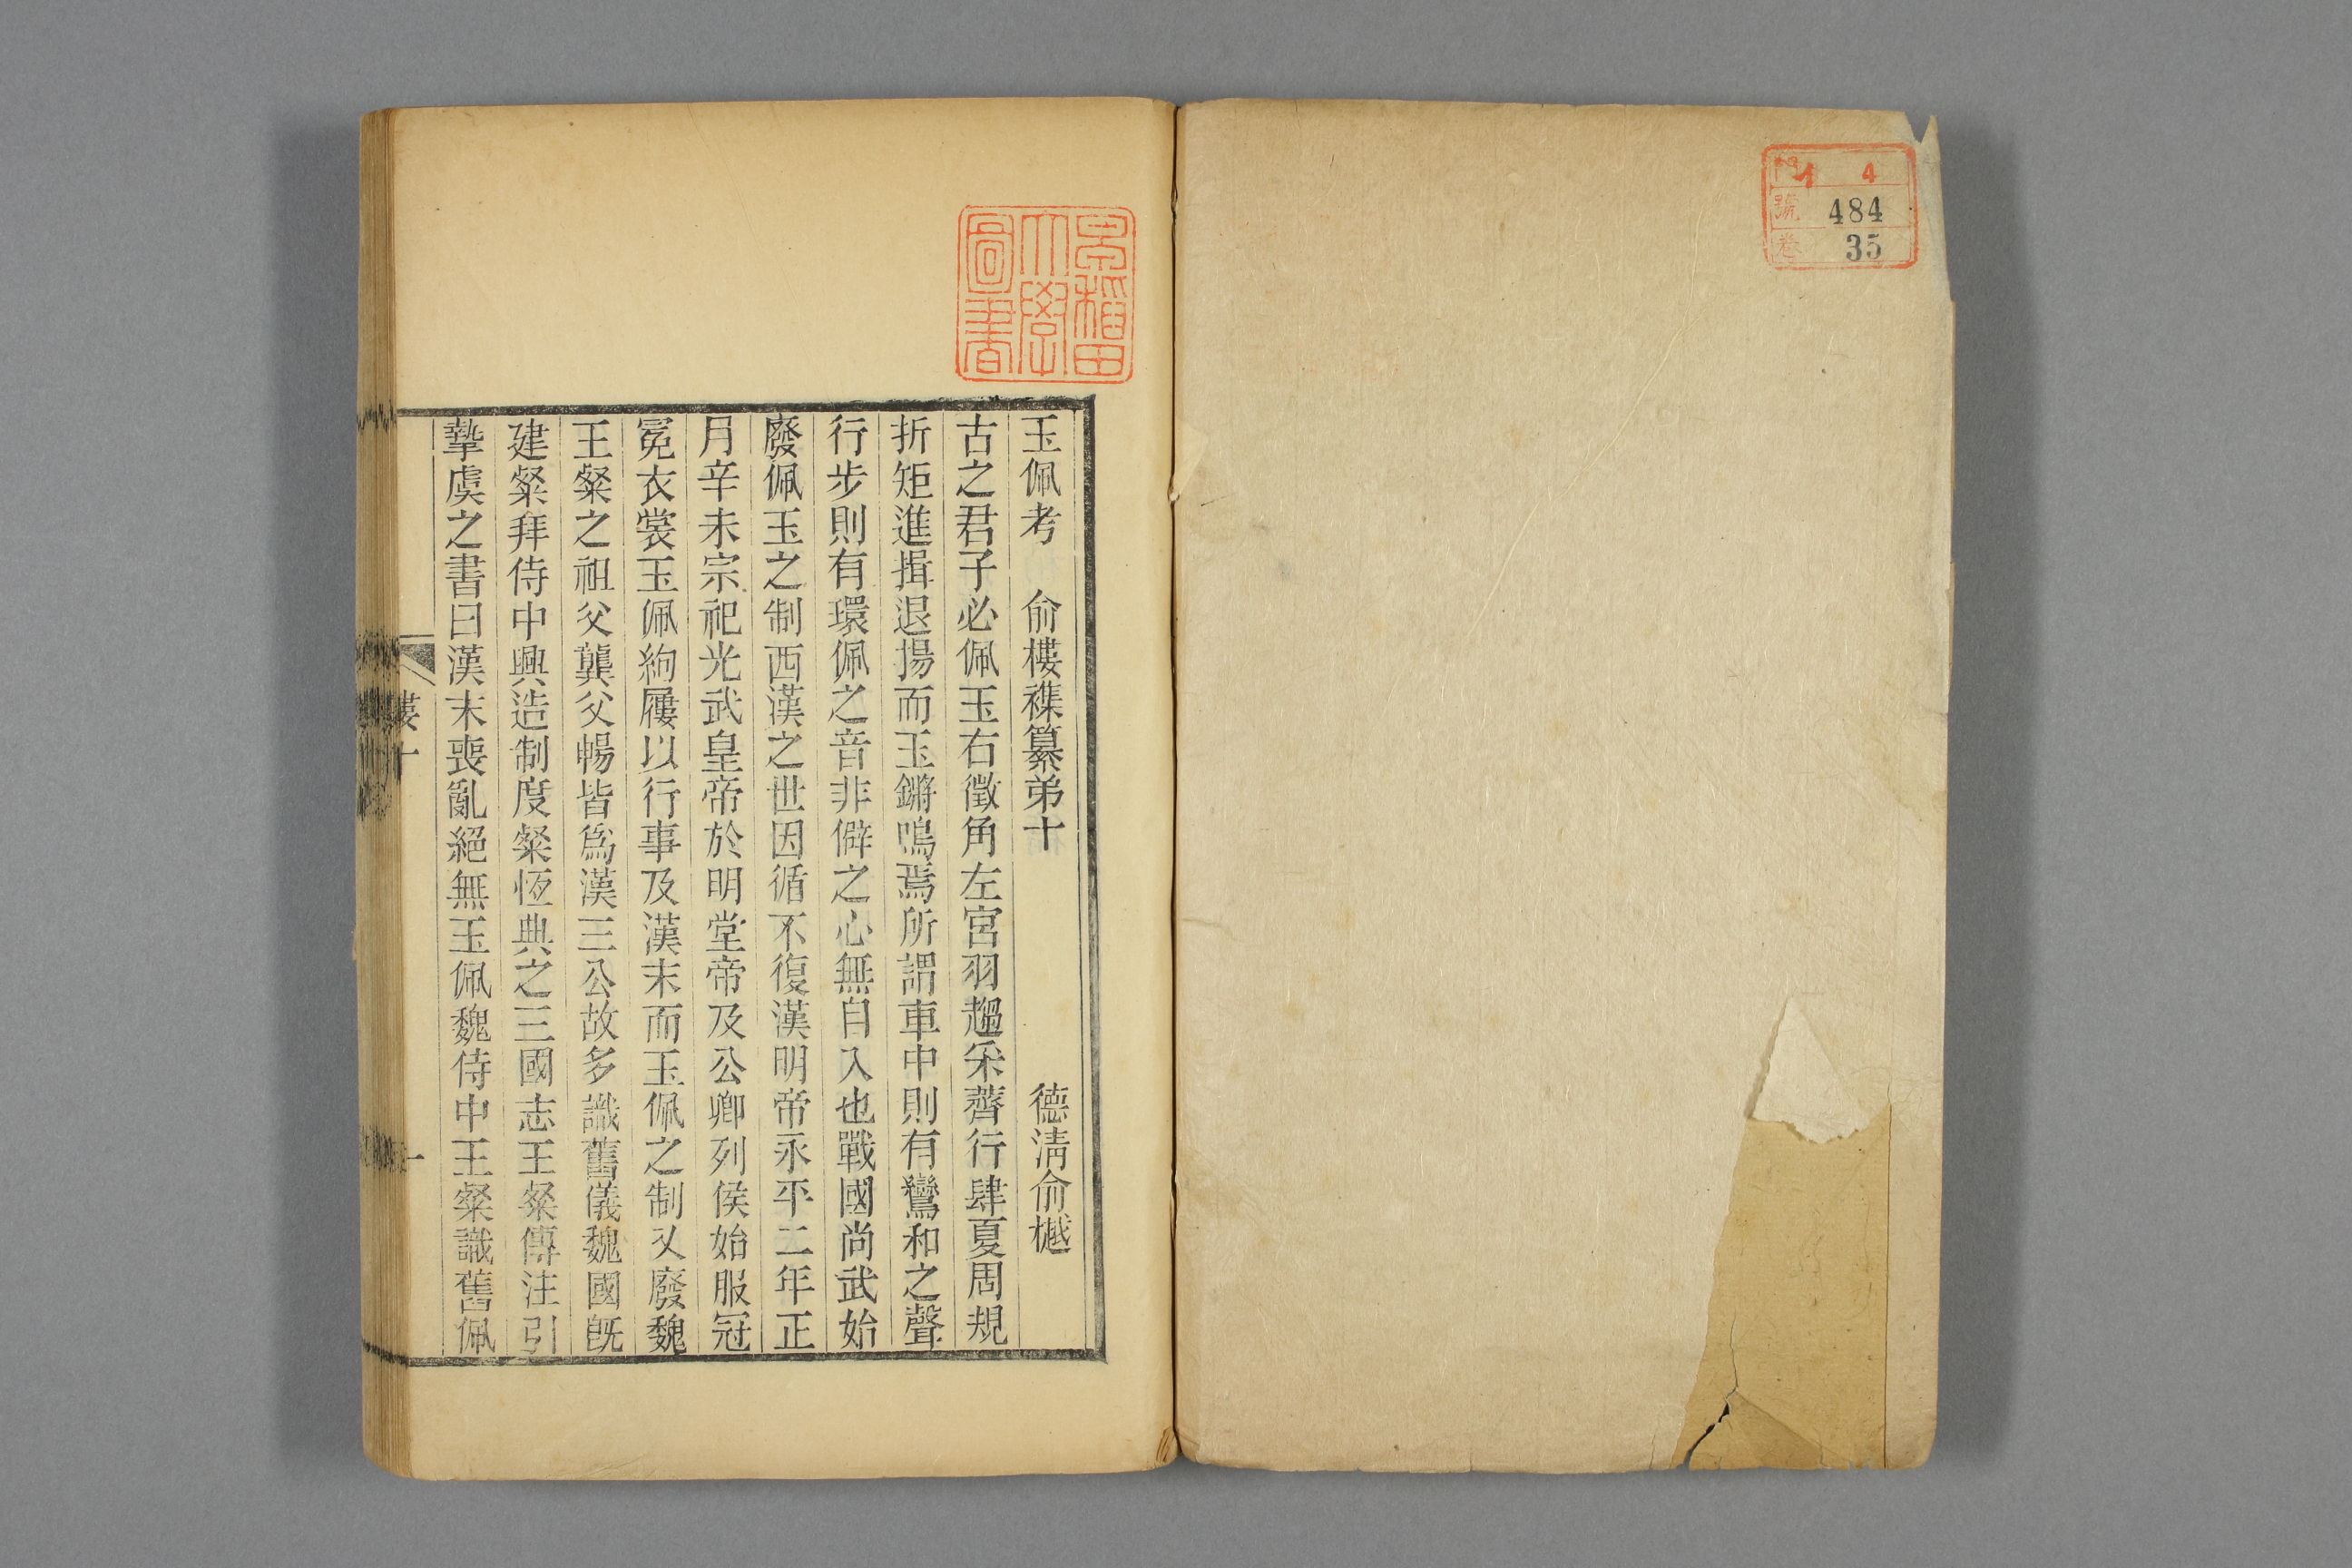 門 イ 4
號 484
卷 35
早稲田大學圖書
玉佩考 俞樓襍纂弟十 德淸俞樾
古之君子必佩玉右徵角左宮羽趨采薺行肆夏周規
折矩進揖退揚而玉鏘鳴焉所謂車中則有鸞和之聲
行步則有環佩之音非僻之心無自入也戰國尚武始
廢佩玉之制西漢之世因循不復漢明帝永平二年正
月辛未宗祀光武皇帝於明堂帝及公卿列侯始服冠
冕衣裳玉佩絇屨以行事及漢末而玉佩之制又廢魏
王粲之祖父龔父暢皆爲漢三公故多識舊儀魏國旣
建粲拜侍中興造制度粲恆典之三國志王粲傳注引
摯虞之書曰漢末喪亂絕無玉佩魏侍中王粲識舊佩
樓十
一